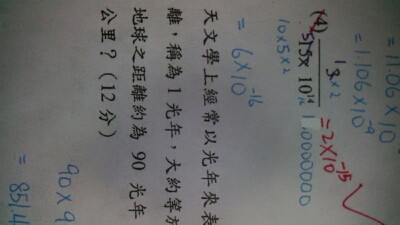 = 11.06 × 10
= 1.106 × 10⁻⁹
(4)
515 × 10¹⁴
13 × 2
10 × 5 × 2
1.0000000
= 2 × 10⁻¹⁵
= 6 × 10⁻¹⁶
天文學上經常以光年來表
離，稱為 1 光年，大約等於
地球之距離約為 90 光年
公里？（12 分）
90 × 9
= 851.4